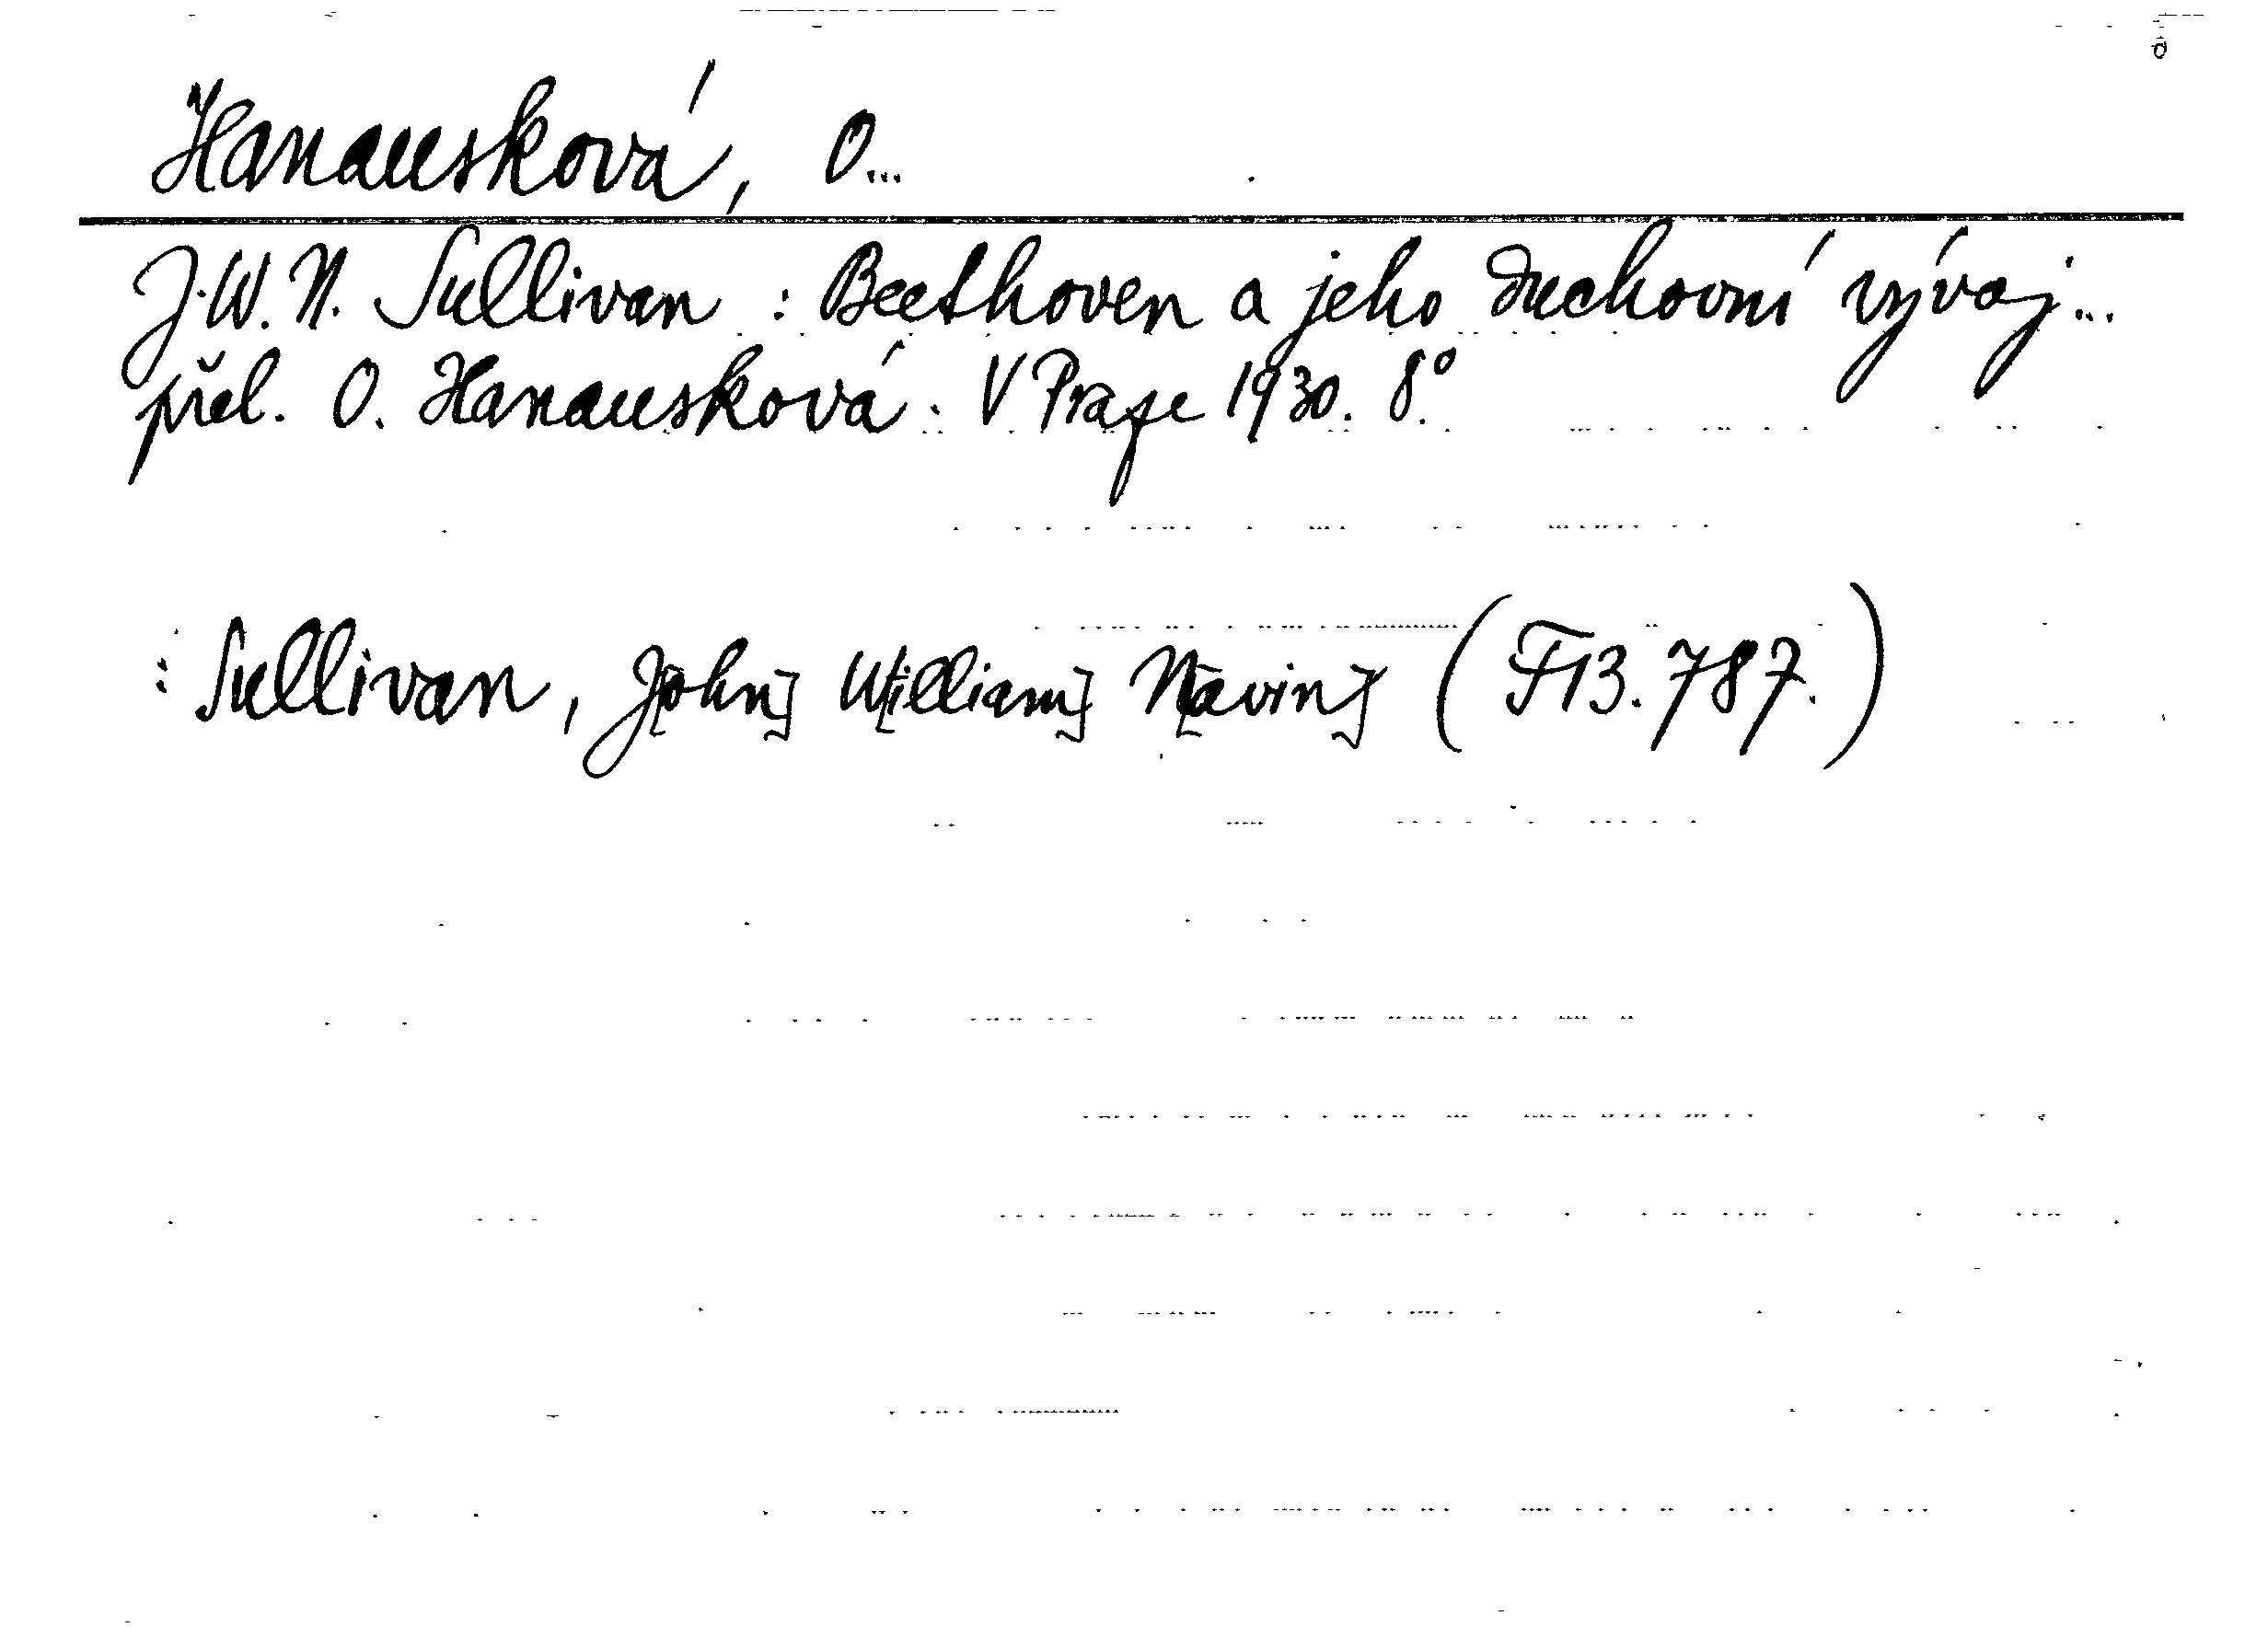 Hanausková, O...
J. W. N. Sullivan : Beethoven a jeho duchovní vývoj...
přel. O. Hanausková. V Praze 1930. 8°.
: Sullivan, J[ohn] W[illiam] N[avin] (F13.787.)